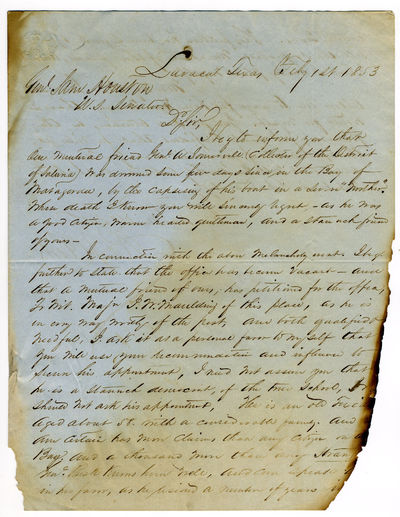 Lavacat Texas Feby 1st 1853
Genl Sam Houston
U.S. Senator
Dr Sir
I beg to inform you that
our mutual friend Genl A Somervell (Collector of the District
of Saluria) was drowned some few days since, in the Bay of
Matagorda, by the capsizing of his boat in a severe "Norther".
Whose death I know you will sincerely regret - as he was
a good citizen, warm heated gentleman, and a staunch friend
of yours -
In connection with the above melancholy event. I beg
further to state that the office has become vacant - and
that a mutual friend of ours, has petitioned for the office,
To Wit. Majr I. W. Mauldin of this place, as he is
in evry way worthy of the post, and both qualified &
needful, I ask it as a personal favor to my self that
you will use your recommendation and influence to
secure his appointment, I need not assure you that
he is a staunch democrat, of the true School, I
should not ask his appointment, He is an old
aged about 50. with a considerable family. And
am certain has more claims than any citizen on
Bay, and a thousand more than any
Genl Rusk knows him well, and can speak
in his favor, as he resided a number of years